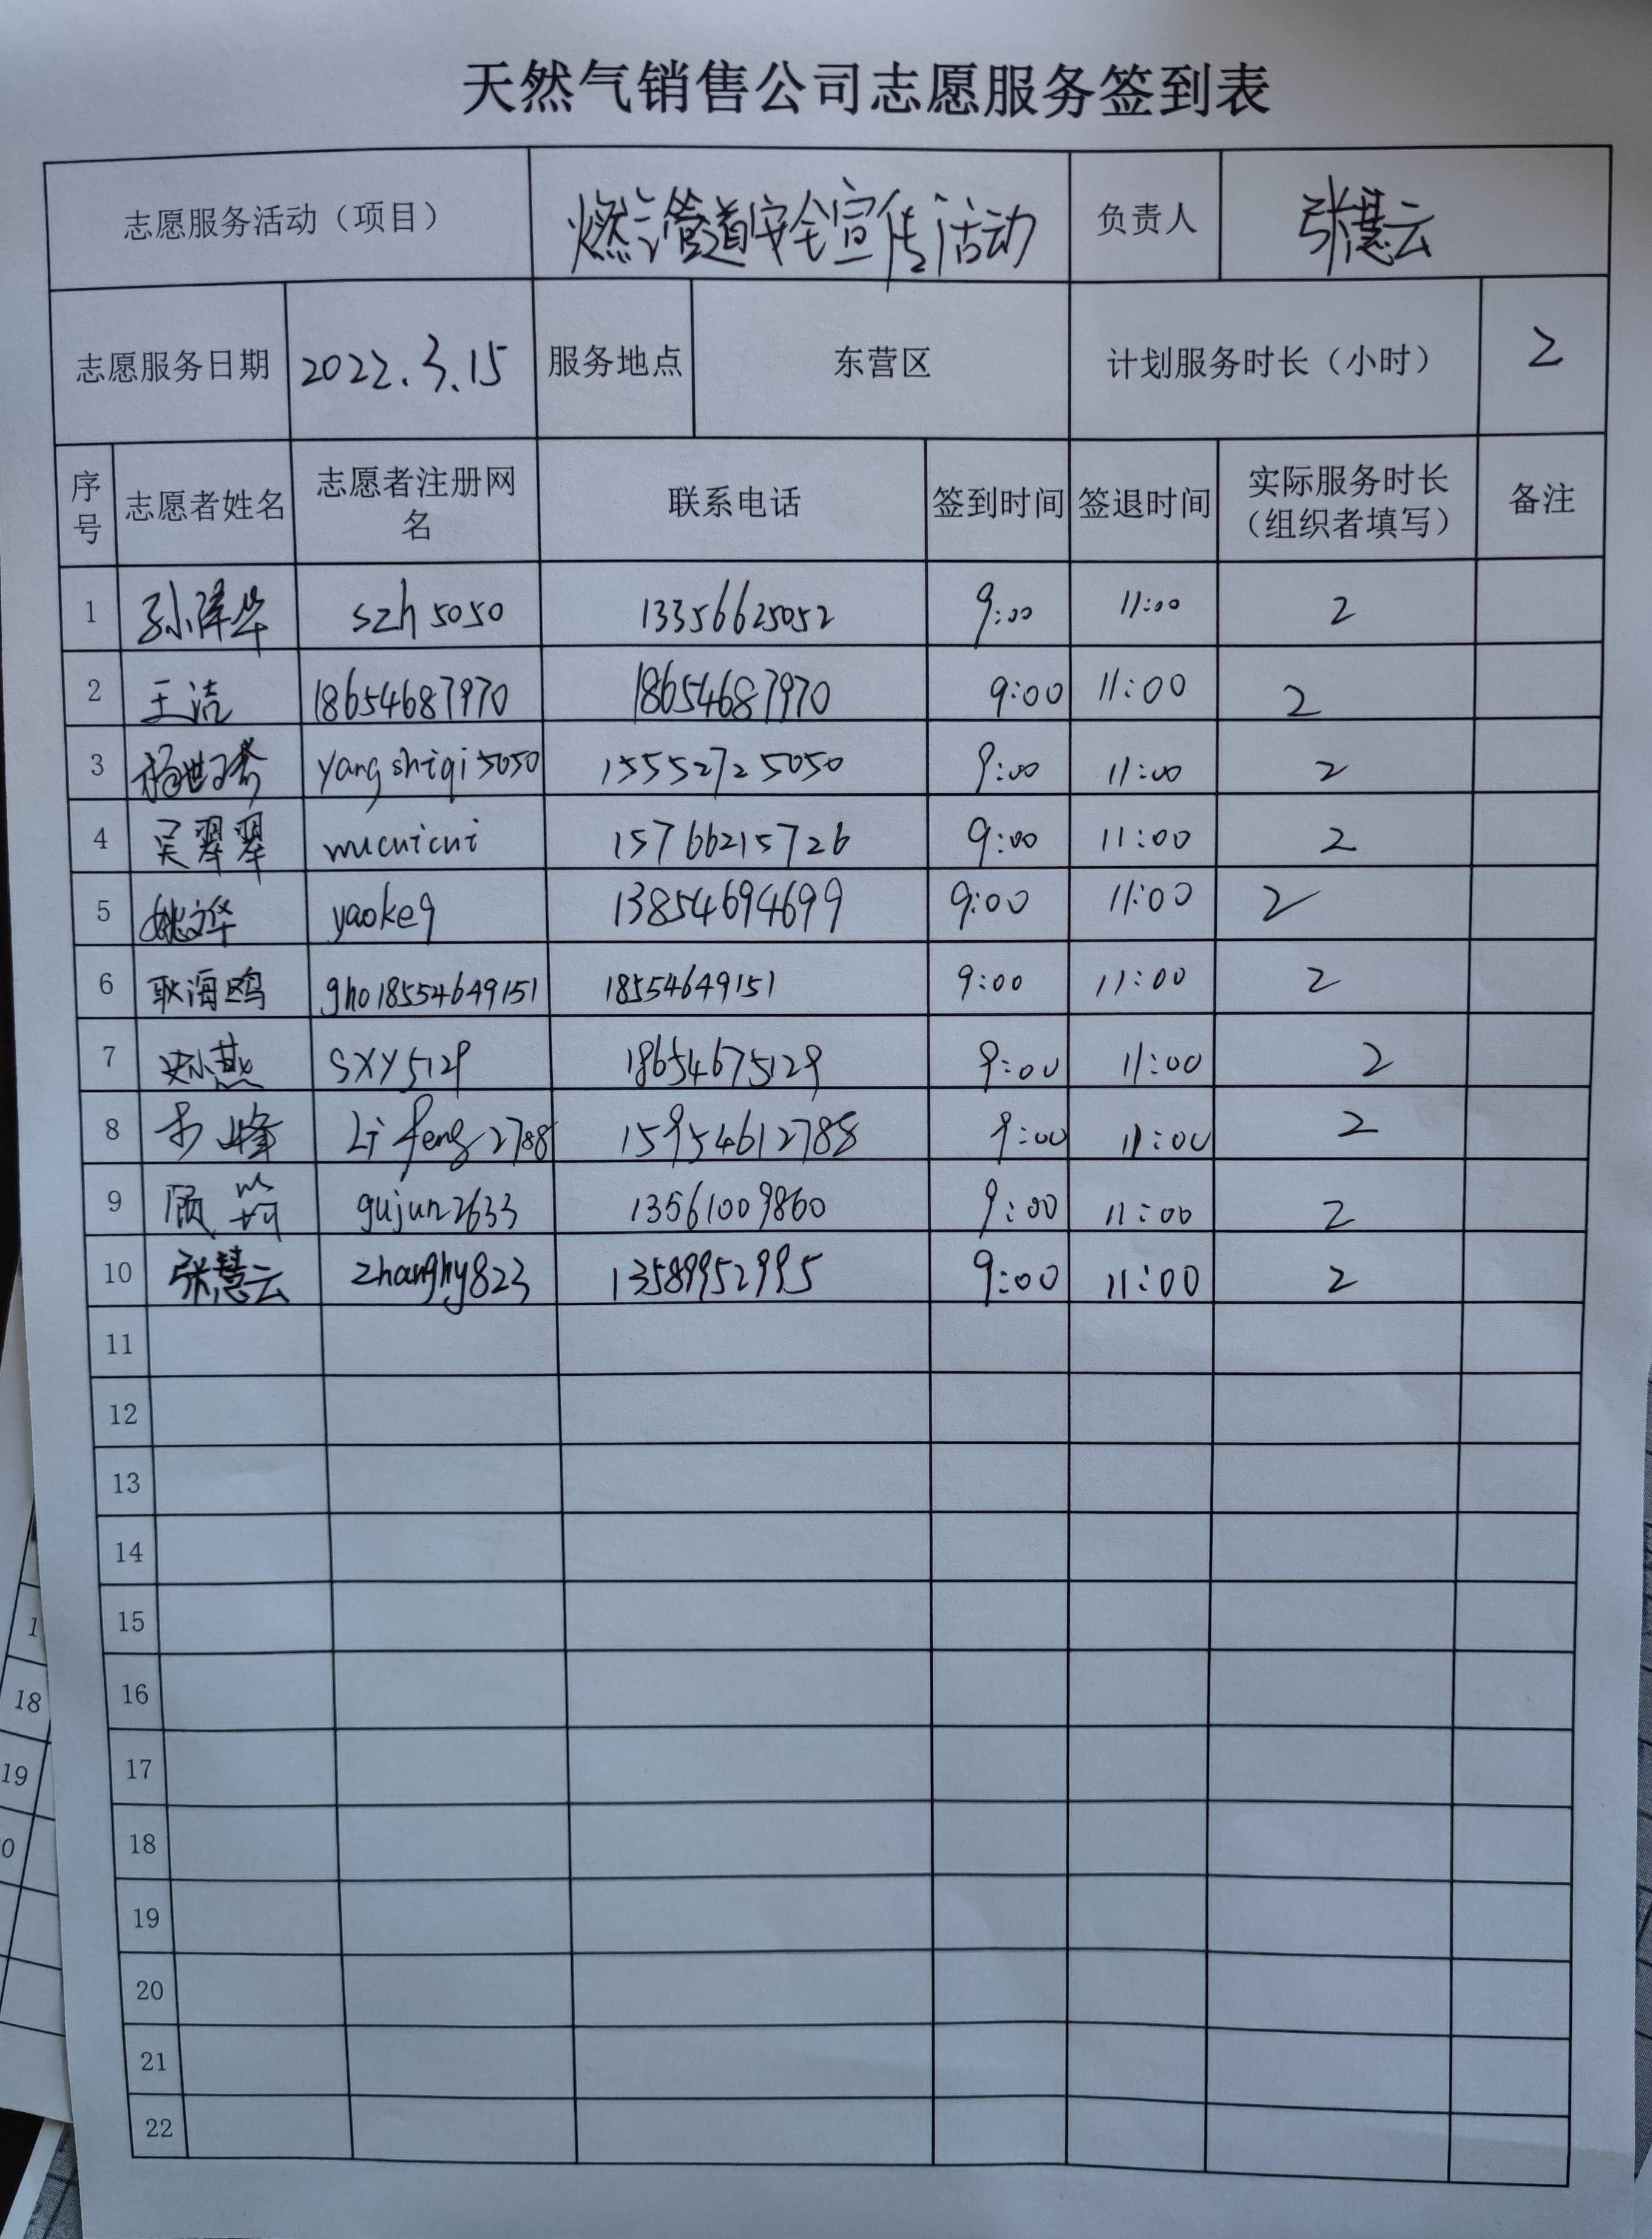 天然气销售公司志愿服务签到表
志愿服务活动（项目） 燃气管道安全宣传活动 负责人 张慧云
志愿服务日期 2022.3.15 服务地点 东营区 计划服务时长（小时） 2
序号 志愿者姓名 志愿者注册网名 联系电话 签到时间 签退时间 实际服务时长（组织者填写） 备注
1 孙泽华 szh5050 13356625052 9:00 11:00 2
2 王洁 18654687970 18654687970 9:00 11:00 2
3 杨世琦 yangshiqi5050 15552725050 9:00 11:00 2
4 吴翠翠 wucuicui 15766215726 9:00 11:00 2
5 姚文华 yaokeq 13854694699 9:00 11:00 2
6 耿海鸥 gho18554649151 18554649151 9:00 11:00 2
7 燕 sxy5129 18654675129 9:00 11:00 2
8 李峰 Lifeng2788 15954612788 9:00 11:00 2
9 顾 gujun2633 13561009860 9:00 11:00 2
10 张慧云 zhanghy823 13589952995 9:00 11:00 2
11
12
13
14
15
16
17
18
19
20
21
22
1
18
19
0